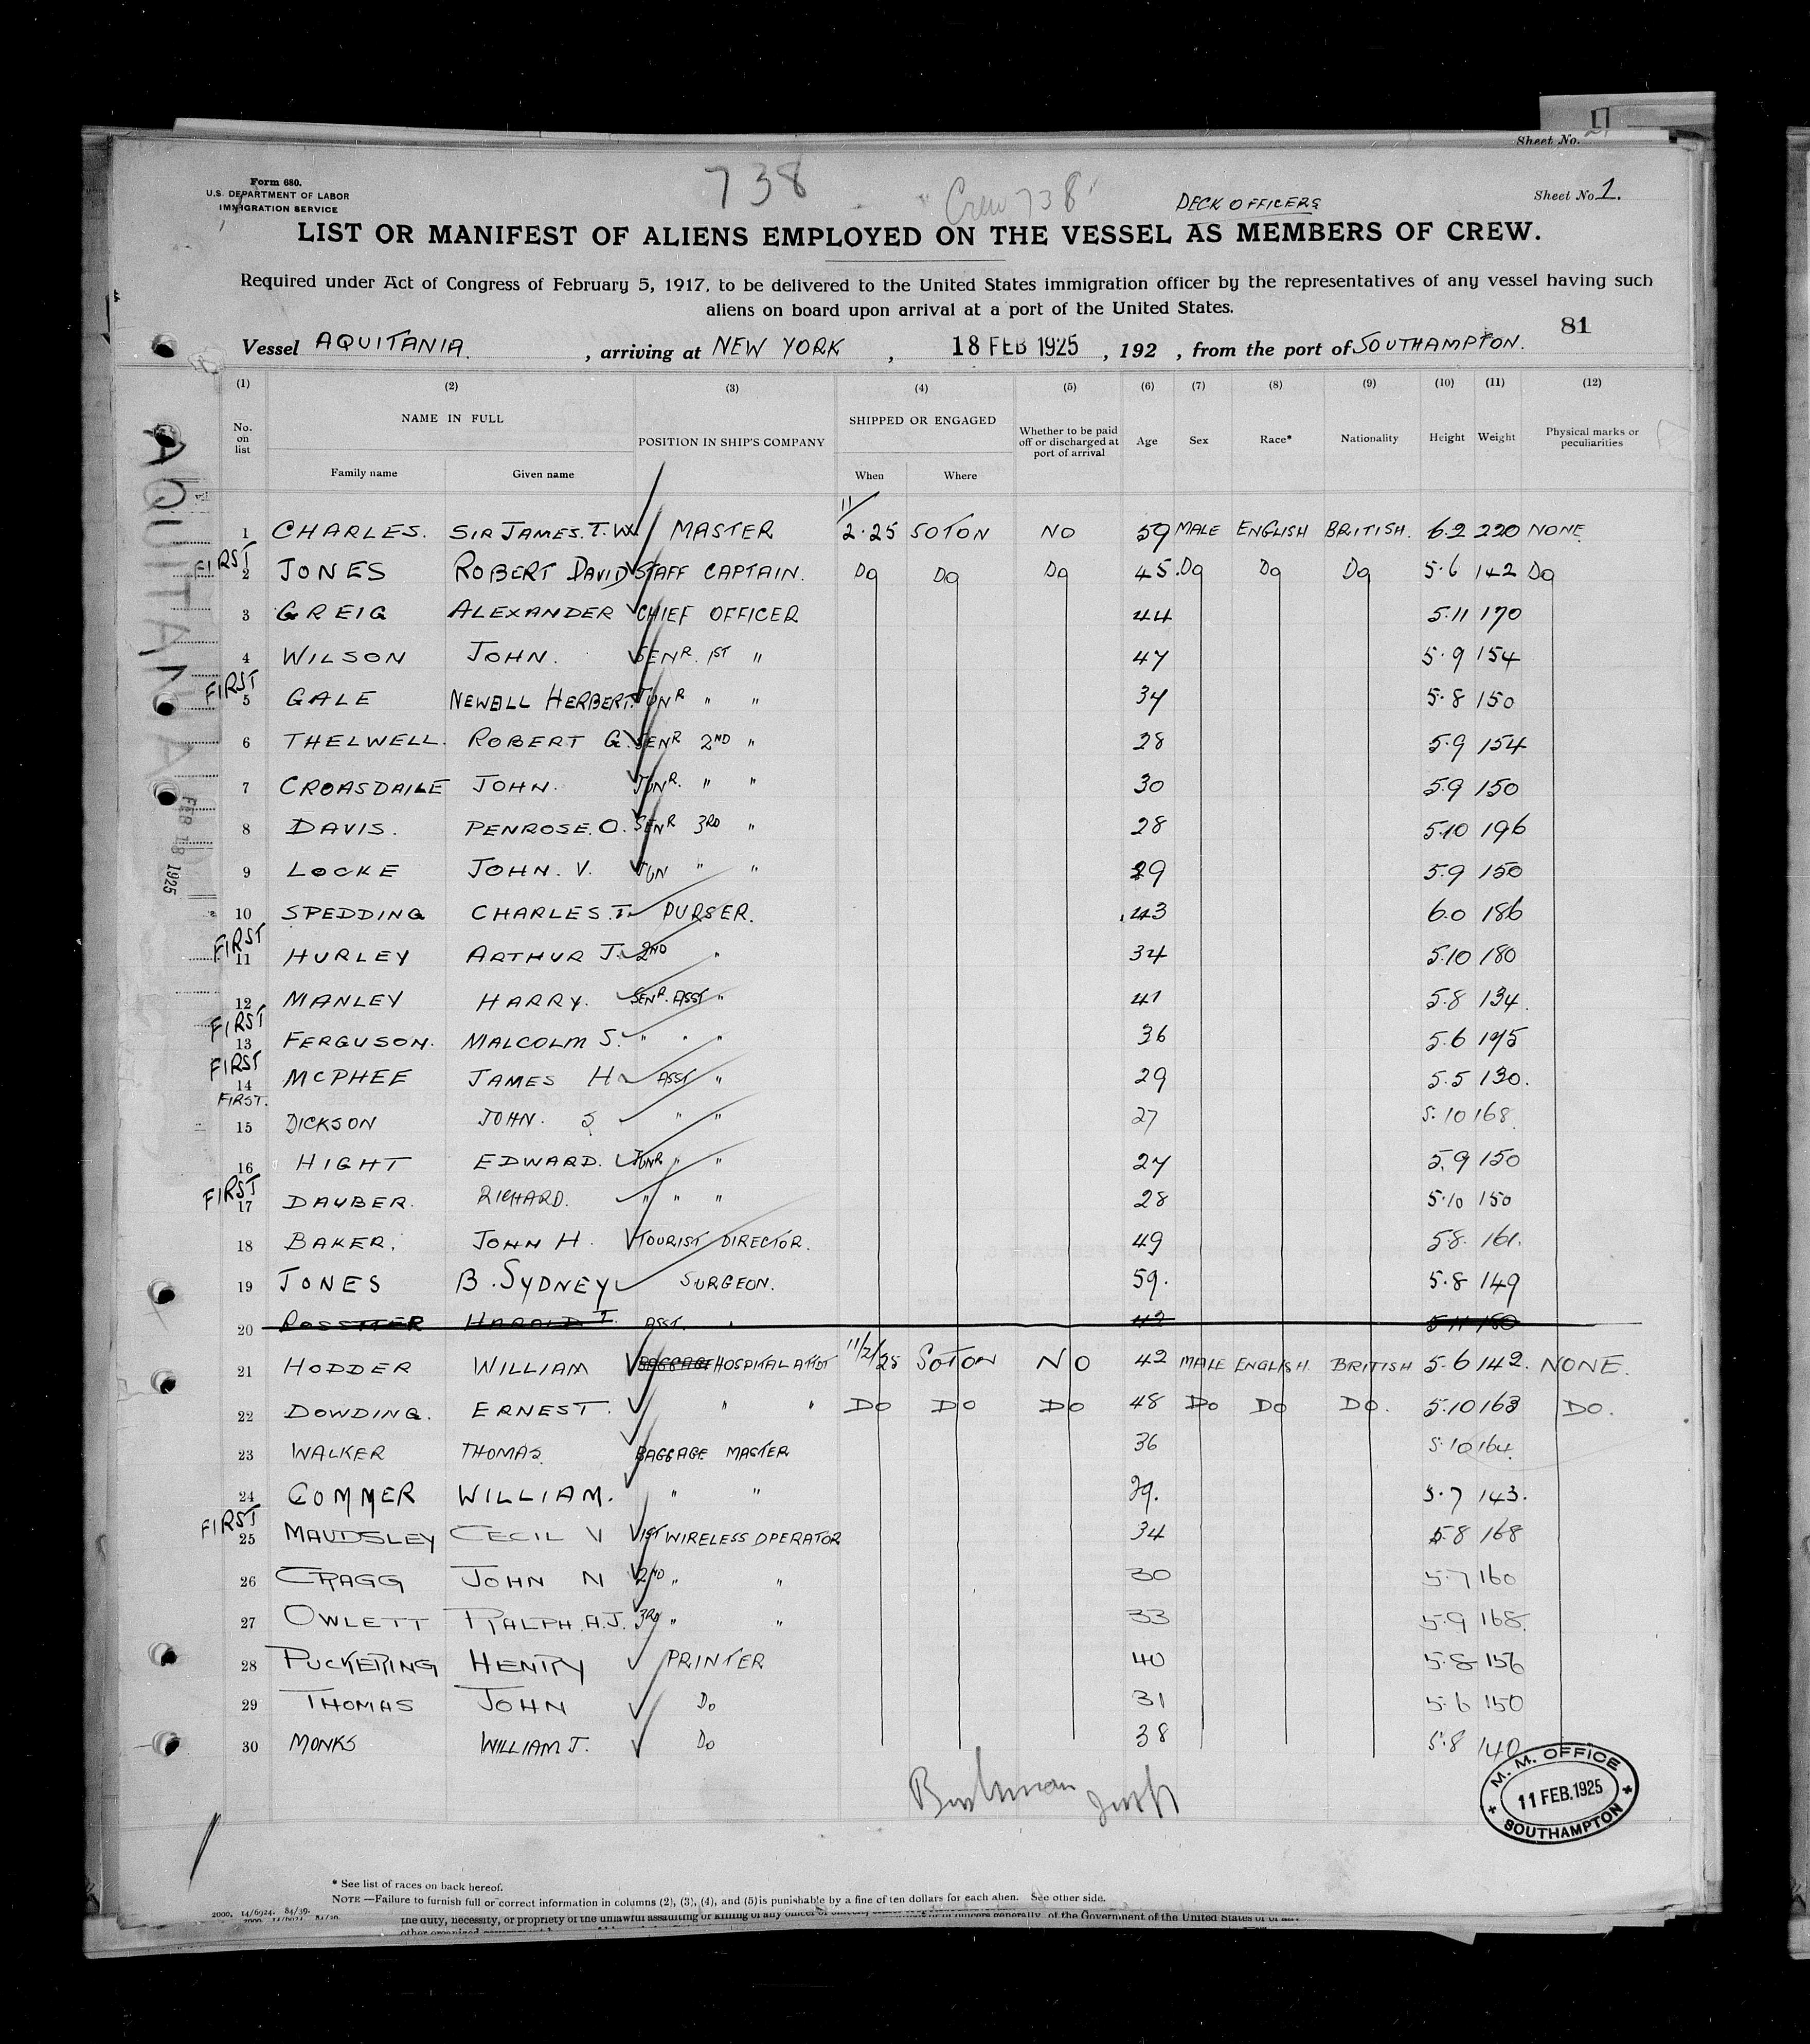 Sheet No. 21
738
"Crew 738"
DECK OFFICERS
Sheet No. 1.
Form 680.
U.S. DEPARTMENT OF LABOR
IMMIGRATION SERVICE
LIST OR MANIFEST OF ALIENS EMPLOYED ON THE VESSEL AS MEMBERS OF CREW.
Required under Act of Congress of February 5, 1917, to be delivered to the United States immigration officer by the representatives of any vessel having such
aliens on board upon arrival at a port of the United States.
81
Vessel AQUITANIA. , arriving at NEW YORK , 18 FEB 1925 , 192 , from the port of SOUTHAMPTON.
(1) (2) (3) (4) (5) (6) (7) (8) (9) (10) (11) (12)
No. on list NAME IN FULL POSITION IN SHIP'S COMPANY SHIPPED OR ENGAGED Whether to be paid off or discharged at port of arrival Age Sex Race* Nationality Height Weight Physical marks or peculiarities
Family name Given name When Where
AQUITANIA
FEB 18 1925
1 CHARLES. SIR JAMES. T. W. MASTER 11/2.25 SOTON NO 59 MALE ENGLISH BRITISH. 6.2 220 NONE
FIRST
2 JONES ROBERT DAVID STAFF CAPTAIN. Do Do Do 45. Do Do Do 5.6 142 Do
3 GREIG ALEXANDER CHIEF OFFICER 44 5.11 170
4 WILSON JOHN. SENR. 1ST " 47 5.9 154
FIRST
5 GALE NEWELL HERBERT. JUNR " " 34 5.8 150
6 THELWELL. ROBERT G. SENR 2ND " 28 5.9 154
7 CROASDAILE JOHN. JUNR. " " 30 5.9 150
8 DAVIS. PENROSE. O. SENR 3RD " 28 5.10 196
9 LOCKE JOHN. V. JUN " " 29 5.9 150
10 SPEDDING CHARLES. T. PURSER. 43 6.0 186
FIRST
11 HURLEY ARTHUR J. 2ND " 34 5.10 180
12 MANLEY HARRY. SENR. ASST " 41 5.8 134.
FIRST
13 FERGUSON. MALCOLM S. " " " 36 5.6 195
FIRST
14 MCPHEE JAMES H ASST " 29 5.5 130.
FIRST.
15 DICKSON JOHN. S " " 27 5.10 168.
16 HIGHT EDWARD. JUNR " " 27 5.9 150
FIRST
17 DAUBER. RICHARD. " " " 28 5.10 150
18 BAKER. JOHN H. TOURIST DIRECTOR. 49 5.8. 161.
19 JONES B. SYDNEY SURGEON. 59. 5.8 149
20 HAROLD T. ASST. " 42 5.11 180
21 HODDER WILLIAM BAGGAGE HOSPITAL ATTDT 11/2/25 SOTON NO 42 MALE ENGLISH. BRITISH 5.6 142. NONE.
22 DOWDING. ERNEST. " " DO DO DO 48 DO DO DO. 5.10 163 DO.
23 WALKER THOMAS. BAGGAGE MASTER 36 5.10 164.
24 COMMER WILLIAM. " " 39. 5.7 143.
FIRST
25 MAUDSLEY CECIL V 1ST WIRELESS OPERATOR 34 5.8 168
26 CRAGG JOHN N 2ND " " 30 5.7 160
27 OWLETT RALPH. A.J. 3RD " " 33 5.9 168.
28 PUCKERING HENRY PRINTER 40 5.8 156
29 THOMAS JOHN Do 31 5.6 150
30 MONKS WILLIAM J. Do 38 5.8 140
M. M. OFFICE
11 FEB. 1925
SOUTHAMPTON
* See list of races on back hereof.
NOTE.—Failure to furnish full or correct information in columns (2), (3), (4), and (5) is punishable by a fine of ten dollars for each alien. See other side.
2000. 14/6924. 84/39.
the duty, necessity, or propriety of the unlawful assaulting or killing of any officer or officers, generally, of the Government of the United States or of any